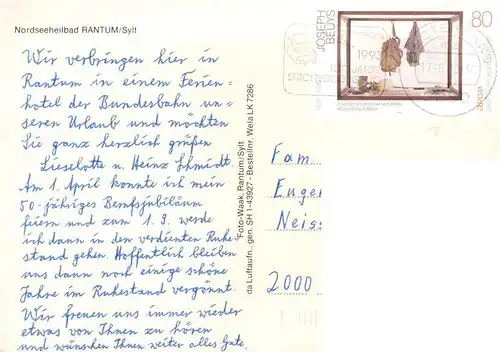 Nordseeheilbad RANTUM/Sylt
Wir verbringen hier in
Rantum in einem Ferien=
hotel der Bundesbahn un=
seren Urlaub und möchten
Sie ganz herzlich grüßen
Lieselotte u. Heinz Schmidt.
Am 1. April konnte ich mein
50-jähriges Berufsjubiläum
feiern und zum 1.9. werde
ich dann in den verdienten Ruhe=
stand gehen. Hoffentlich bleiben
uns dann noch einige schöne
Jahre im Ruhestand vergönnt.
Wir freuen uns immer wieder
etwas von Ihnen zu hören
und wünschen Ihnen weiter alles Gute.
Foto-Waak, Rantum/Sylt
da Luftaufn., gen. SH 1-43927 - Bestellnr. Wela LK 7286
JOSEPH
BEUYS
80
1993
Fam
Euger
Neis
2000